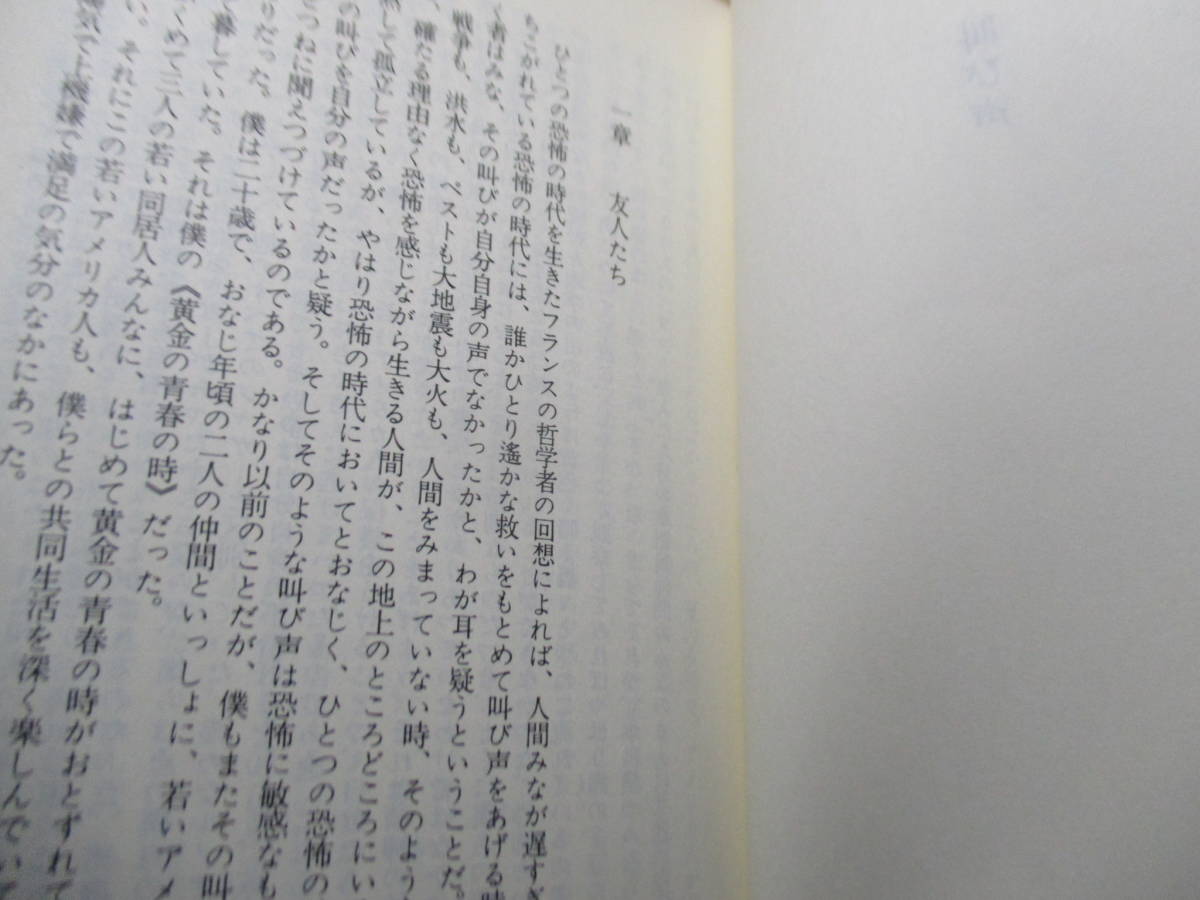 一章　友人たち
ひとつの恐怖の時代を生きたフランスの哲学者の回想によれば、人間みなが遅すぎ
ちこがれている恐怖の時代には、誰かひとり遙かな救いをもとめて叫び声をあげる時
く者はみな、その叫びが自分自身の声でなかったかと、わが耳を疑うということだ。
戦争も、洪水も、ペストも大地震も大火も、人間をみまっていない時、そのよう
確たる理由なく恐怖を感じながら生きる人間が、この地上のところどころにい
して孤立しているが、やはり恐怖の時代においてとおなじく、ひとつの恐怖の
の叫びを自分の声だったかと疑う。そしてそのような叫び声は恐怖に敏感なも
つねに聞えつづけているのである。かなり以前のことだが、僕もまたその叫
りだった。僕は二十歳で、おなじ年頃の二人の仲間といっしょに、若いアメ
番していた。それは僕の《黄金の青春の時》だった。
くめて三人の若い同居人みんなに、はじめて黄金の青春の時がおとずれて
い。それにこの若いアメリカ人も、僕らとの共同生活を深く楽しんでいて
気で上機嫌で満足の気分のなかにあった。